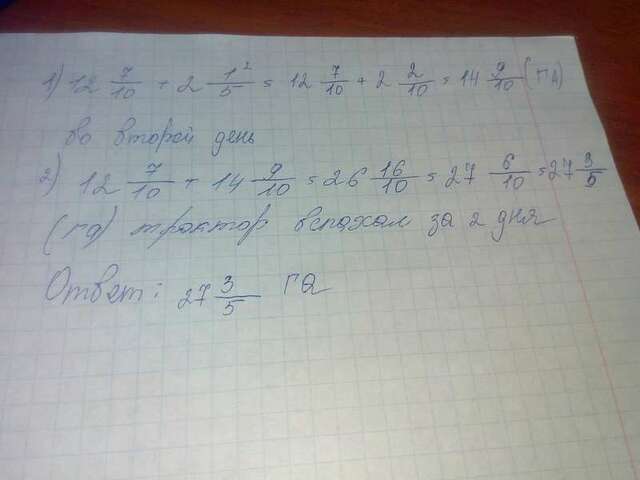 1) 12 7/10 + 2 1/5² = 12 7/10 + 2 2/10 = 14 9/10 (га)
во второй день
2) 12 7/10 + 14 9/10 = 26 16/10 = 27 6/10 = 27 3/5
(га) трактор вспахал за 2 дня
Ответ: 27 3/5 га